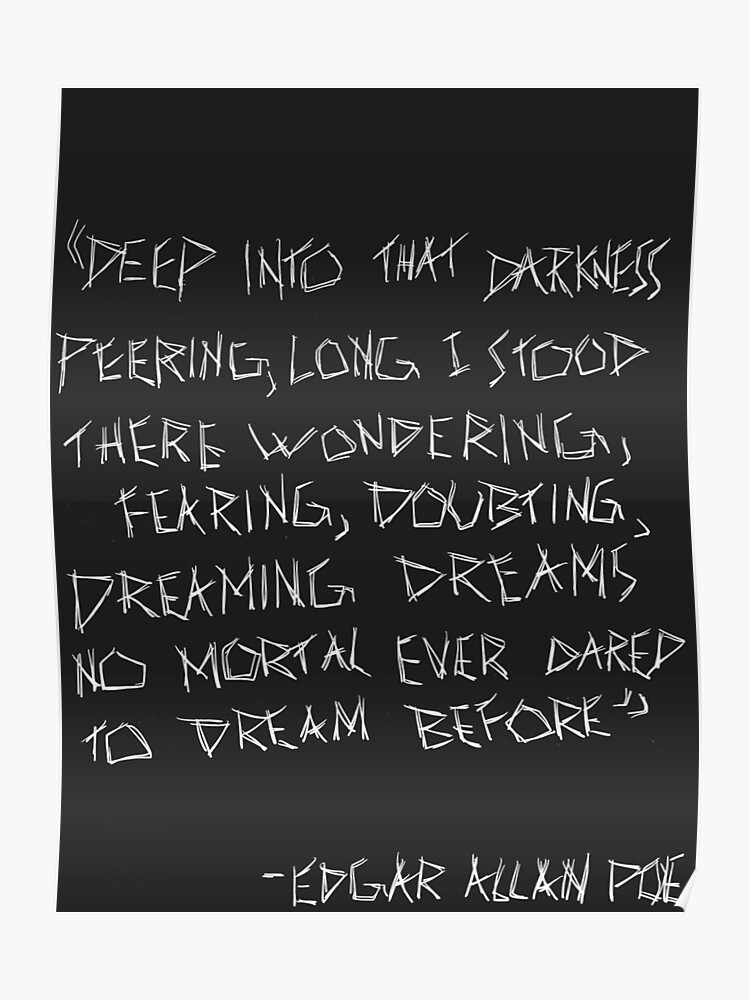 "DEEP INTO THAT DARKNESS
PEERING, LONG I STOOD
THERE WONDERING,
FEARING, DOUBTING,
DREAMING DREAMS
NO MORTAL EVER DARED
TO DREAM BEFORE"
-EDGAR ALLAN POE